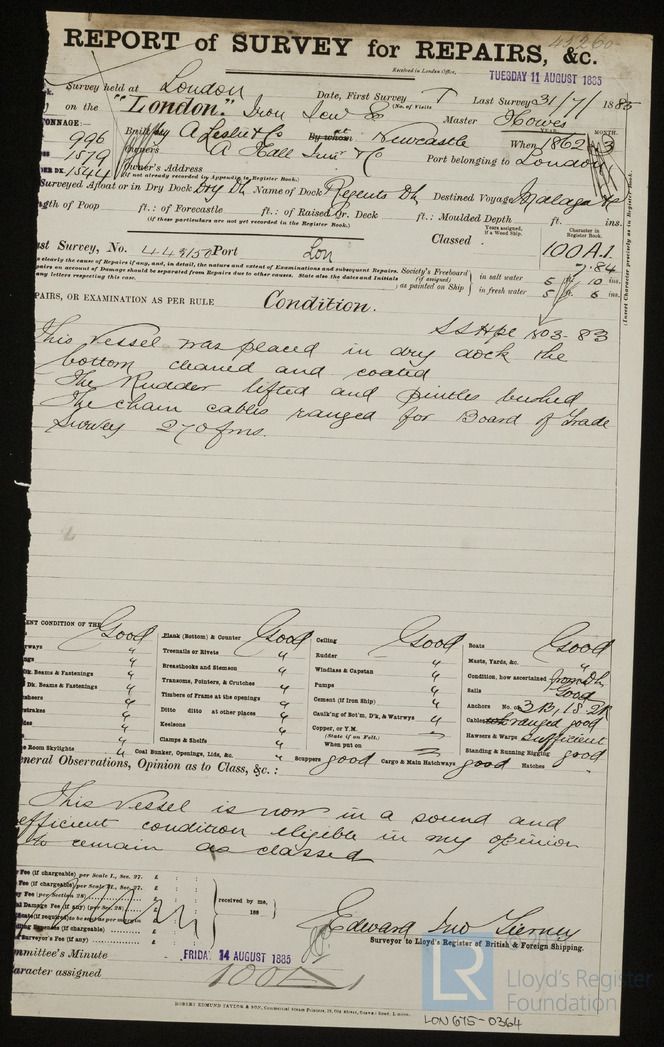 REPORT of SURVEY for REPAIRS, &c.
Received in London Office,
TUESDAY 11 AUGUST 1885
Survey held at London
Date, First Survey
Last Survey 31/7/ 1885
(No. of Visits
on the "London." Iron Screw
Master Howes
TONNAGE:
996
1579
1544
Built by A Leslie & Co
By whom Newcastle
When 1862
YEAR.
MONTH.
3
Owners A Hall Junr & Co
Port belonging to London
Owner's Address
(If not already recorded in Appendix to Register Book.)
Surveyed Afloat or in Dry Dock Dry Dk Name of Dock Regents Dk Destined Voyage Malaga
ngth of Poop ft.: of Forecastle ft.: of Raised Qr. Deck ft.: Moulded Depth ft. ins.
(if these particulars are not yet recorded in the Register Book.)
(Insert Character precisely as in Register Book.
st Survey, No. Port Lon
Classed
Years assigned, if a Wood Ship.
Character in Register Book.
100 A.1.
7.84
e clearly the cause of Repairs if any, and, in detail, the nature and extent of Examinations and subsequent Repairs.
pairs on account of Damage should be separated from Repairs due to other causes. State also the dates and Initials
any letters respecting this case.
Society's Freeboard (if assigned) as painted on Ship
in salt water 5 ft. 10 ins.
in fresh water 5 ft. 6 ins.
PAIRS, OR EXAMINATION AS PER RULE Condition.
SSHpl No3-83
This vessel was placed in dry dock the
bottom cleaned and coated
The Rudder lifted and pintles bushed
The chain cables ranged for Board of Trade
Survey 270 fms.
ENT CONDITION OF THE
Good
rways "
ngs "
Dk. Beams & Fastenings "
Dk. Beams & Fastenings "
nheers "
strakes "
des "
"
e Room Skylights "
Plank (Bottom) & Counter Good
Treenails or Rivets "
Breasthooks and Stemson "
Transoms, Pointers, & Crutches "
Timbers of Frame at the openings "
Ditto ditto at other places "
Keelsons "
Clamps & Shelfs "
Coal Bunker, Openings, Lids, &c. "
Ceiling Good
Rudder "
Windlass & Capstan "
Pumps "
Cement (if Iron Ship) "
Caulk'g of Bot'm, D'k, & Watrwys "
Copper, or Y.M.
(State if on Felt.)
When put on
Scuppers good Cargo & Main Hatchways good Hatches
Boats Good
Masts, Yards, &c. "
Condition, how ascertained from Dk
Sails Good
Anchors No. of 3 B, 1 S. 2 K
Cables ranged good
Hawsers & Warps Sufficient
Standing & Running Rigging good
neral Observations, Opinion as to Class, &c.:
This Vessel is now in a sound and
efficient condition eligible in my opinion
to remain as classed
y Fee (if chargeable) per Scale I., Sec. 27. £ : :
Fee (if chargeable) per Scale II., Sec. 27. £ : :
y Fee (per Section 28) £ : :
al Damage Fee (if any) (per Sec. 28) £ : :
icate (if required) to be sent as per margin
lling Expenses (if chargeable) £ : :
e Surveyor's Fee (if any) £ : :
received by me,
188
Edward Jno Tierney
Surveyor to Lloyd's Register of British & Foreign Shipping.
mmittee's Minute FRIDAY 14 AUGUST 1885
aracter assigned 100A1
ROBERT EDMUND TAYLOR & SON, Commercial Steam Printers, 19, Old Street, Goswell Road, London.
LR
© 2021
Lloyd's Register
Foundation
LON 675-0364